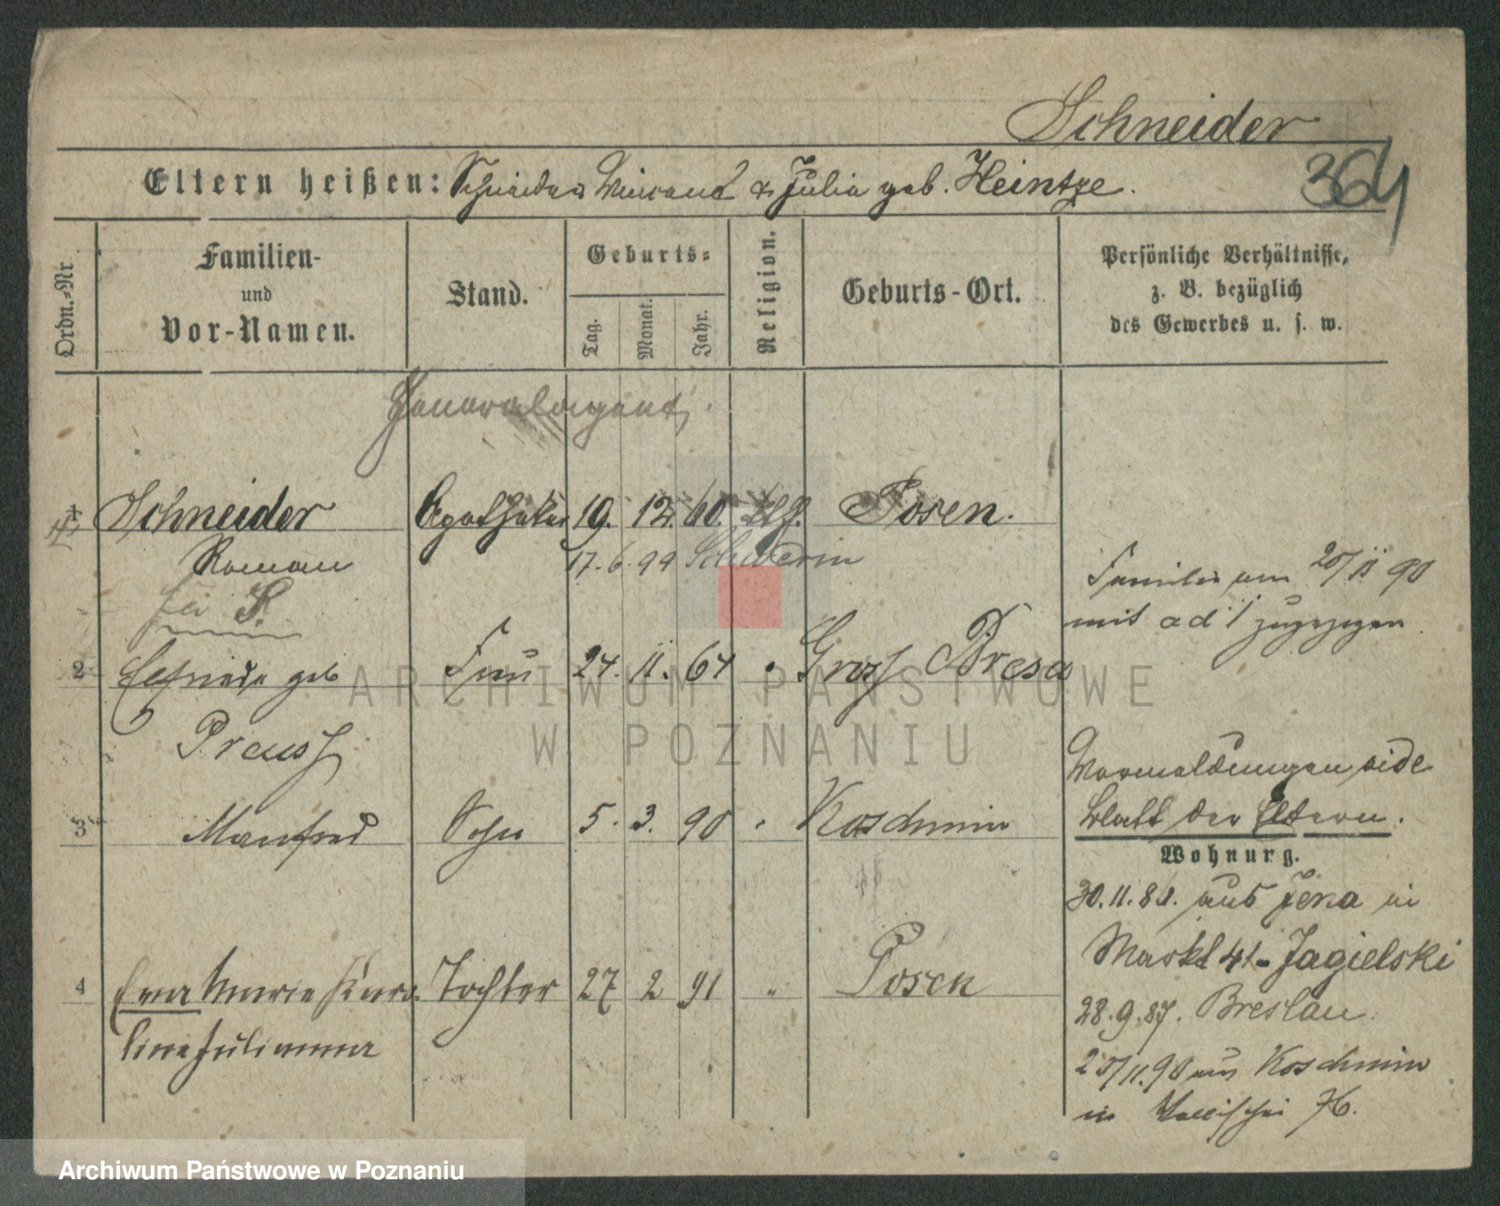 Schneider
364
Eltern heißen: Schneider Vincent & Julia geb. Heintze.
Ordn.-Nr.
Familien-
und
Vor-Namen.
Stand.
Geburts-
Tag.
Monat.
Jahr.
Religion.
Geburts-Ort.
Persönliche Verhältnisse,
z. B. bezüglich
des Gewerbes u. s. w.
Generalagent.
1 Schneider Apotheker 19. 12. 60. Posen.
Roman 17. 6. 99 Schwerin
Familie am 20/11 90
mit ad 1 zugezogen
2 Elfriede geb Frau 24. 11. 64 Gross Dresa
Preuss
Vormeldungen vide
Blatt der Eltern.
3 Manfred Sohn 5. 3. 90 Koschmin
Wohnung.
30. 11. 80. aus Jena in
Markt 41. Jagielski
4 Eva Marie Karo- Tochter 27 2 91 " Posen
28. 9. 87. Breslau.
line Julianna
20/11. 90 aus Koschmin
in Wallischei 76.
ARCHIWUM PAŃSTWOWE
W POZNANIU
Archiwum Państwowe w Poznaniu